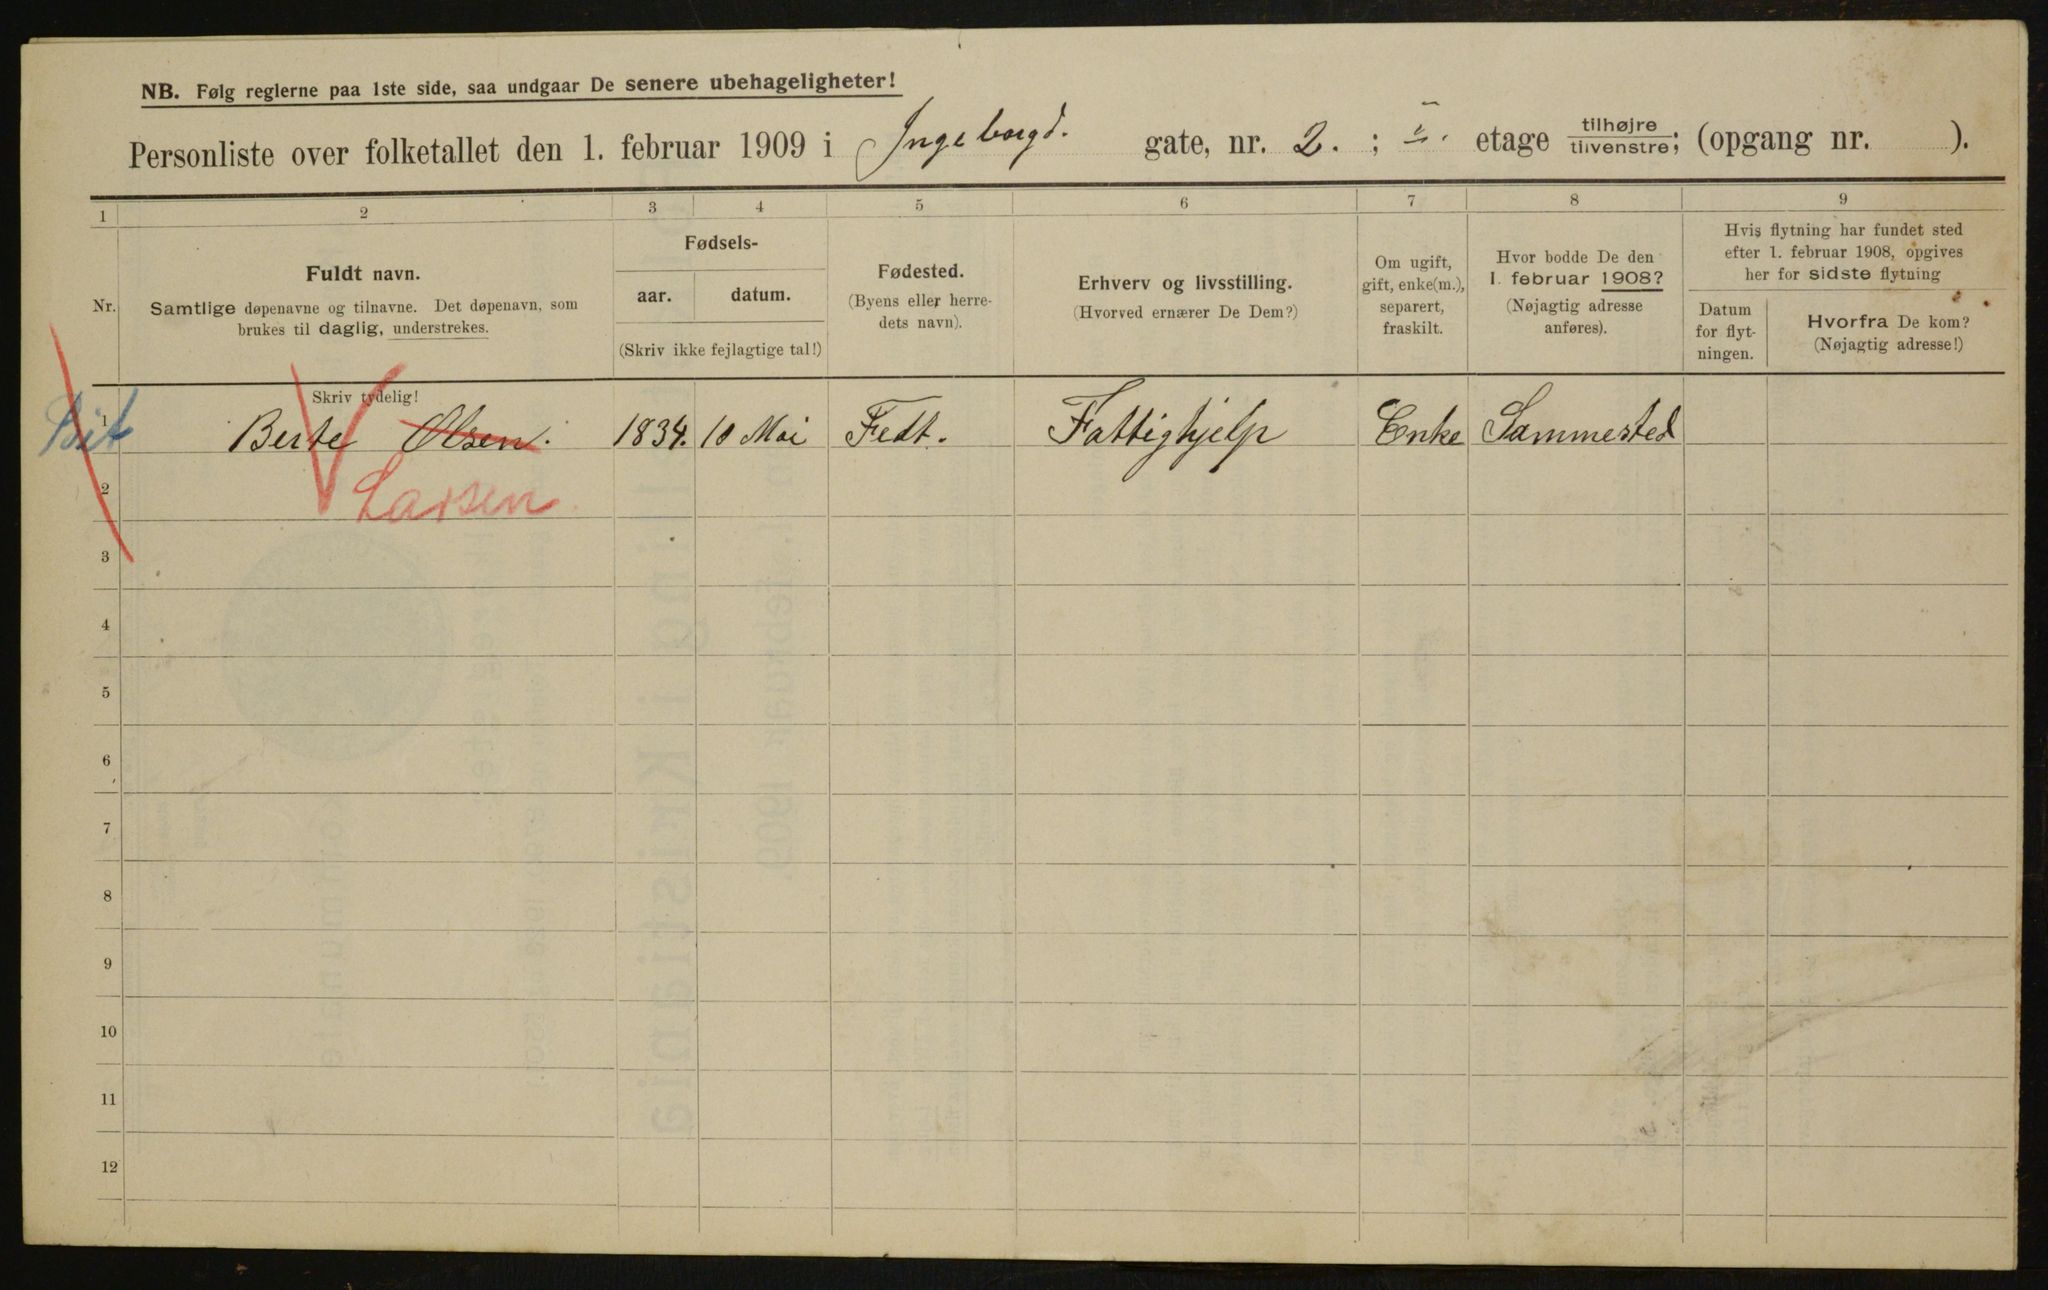 NB. Følg reglerne paa 1ste side, saa undgaar De senere ubehageligheter!
Personliste over folketallet den 1. februar 1909 i Ingeborgd. gate, nr. 2. ; II. etage tilhøjre tilvenstre; (opgang nr. ).
1 2 3 4 5 6 7 8 9
Nr.
Fuldt navn.
Samtlige døpenavne og tilnavne. Det døpenavn, som
brukes til daglig, understrekes.
Fødsels-
aar. datum.
(Skriv ikke fejlagtige tal!)
Fødested.
(Byens eller herre-
dets navn).
Erhverv og livsstilling.
(Hvorved ernærer De Dem?)
Om ugift,
gift, enke(m.),
separert,
fraskilt.
Hvor bodde De den
1. februar 1908?
(Nøjagtig adresse
anføres).
Hvis flytning har fundet sted
efter 1. februar 1908, opgives
her for sidste flytning
Datum
for flyt-
ningen.
Hvorfra De kom?
(Nøjagtig adresse!)
Skriv tydelig!
1 Berte Olsen. 1834. 10 Mai Fedt. Fattighjelp Enke Sammested
2 Larsen
3
4
5
6
7
8
9
10
11
12